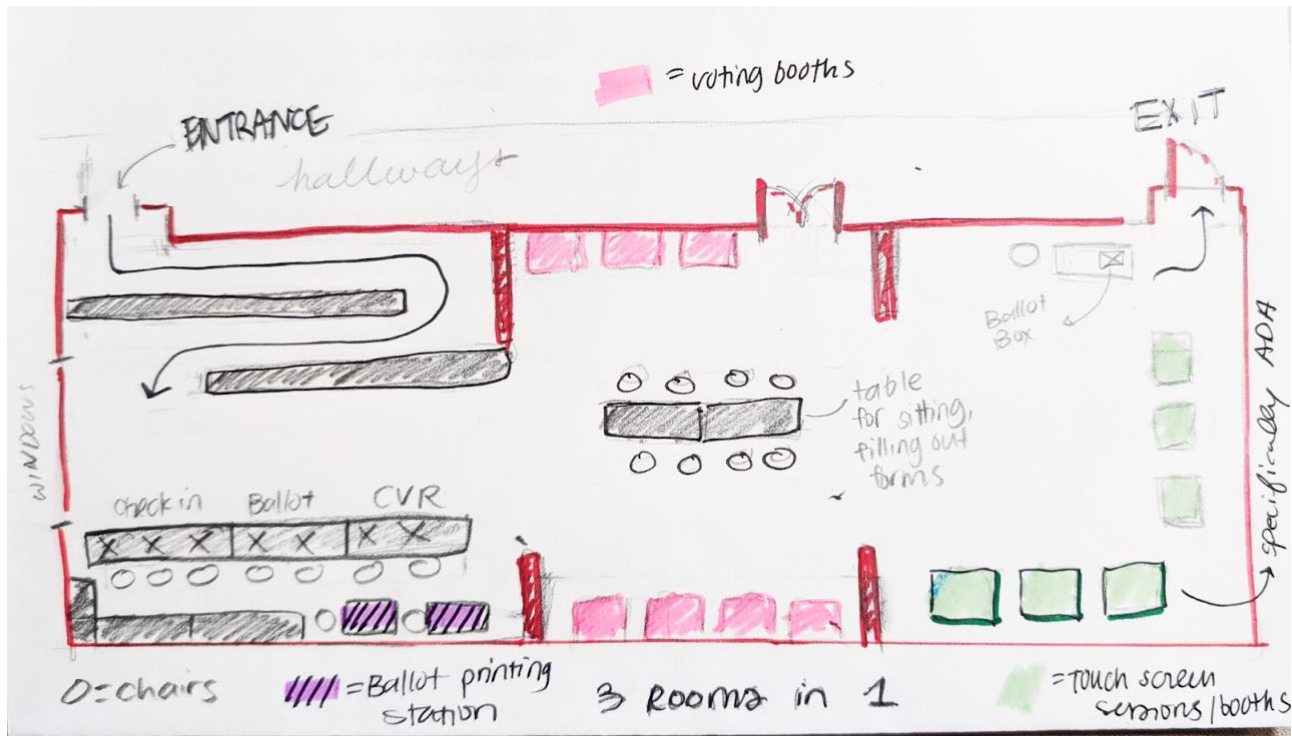 = voting booths
ENTRANCE
EXIT
hallways
Ballot
Box
WINDOWS
table
for sitting,
filling out
forms
specifically ADA
Check in Ballot CVR
X X X X X X X
O=chairs
=Ballot printing
station
3 Rooms in 1
=Touch screen
sessions/booths